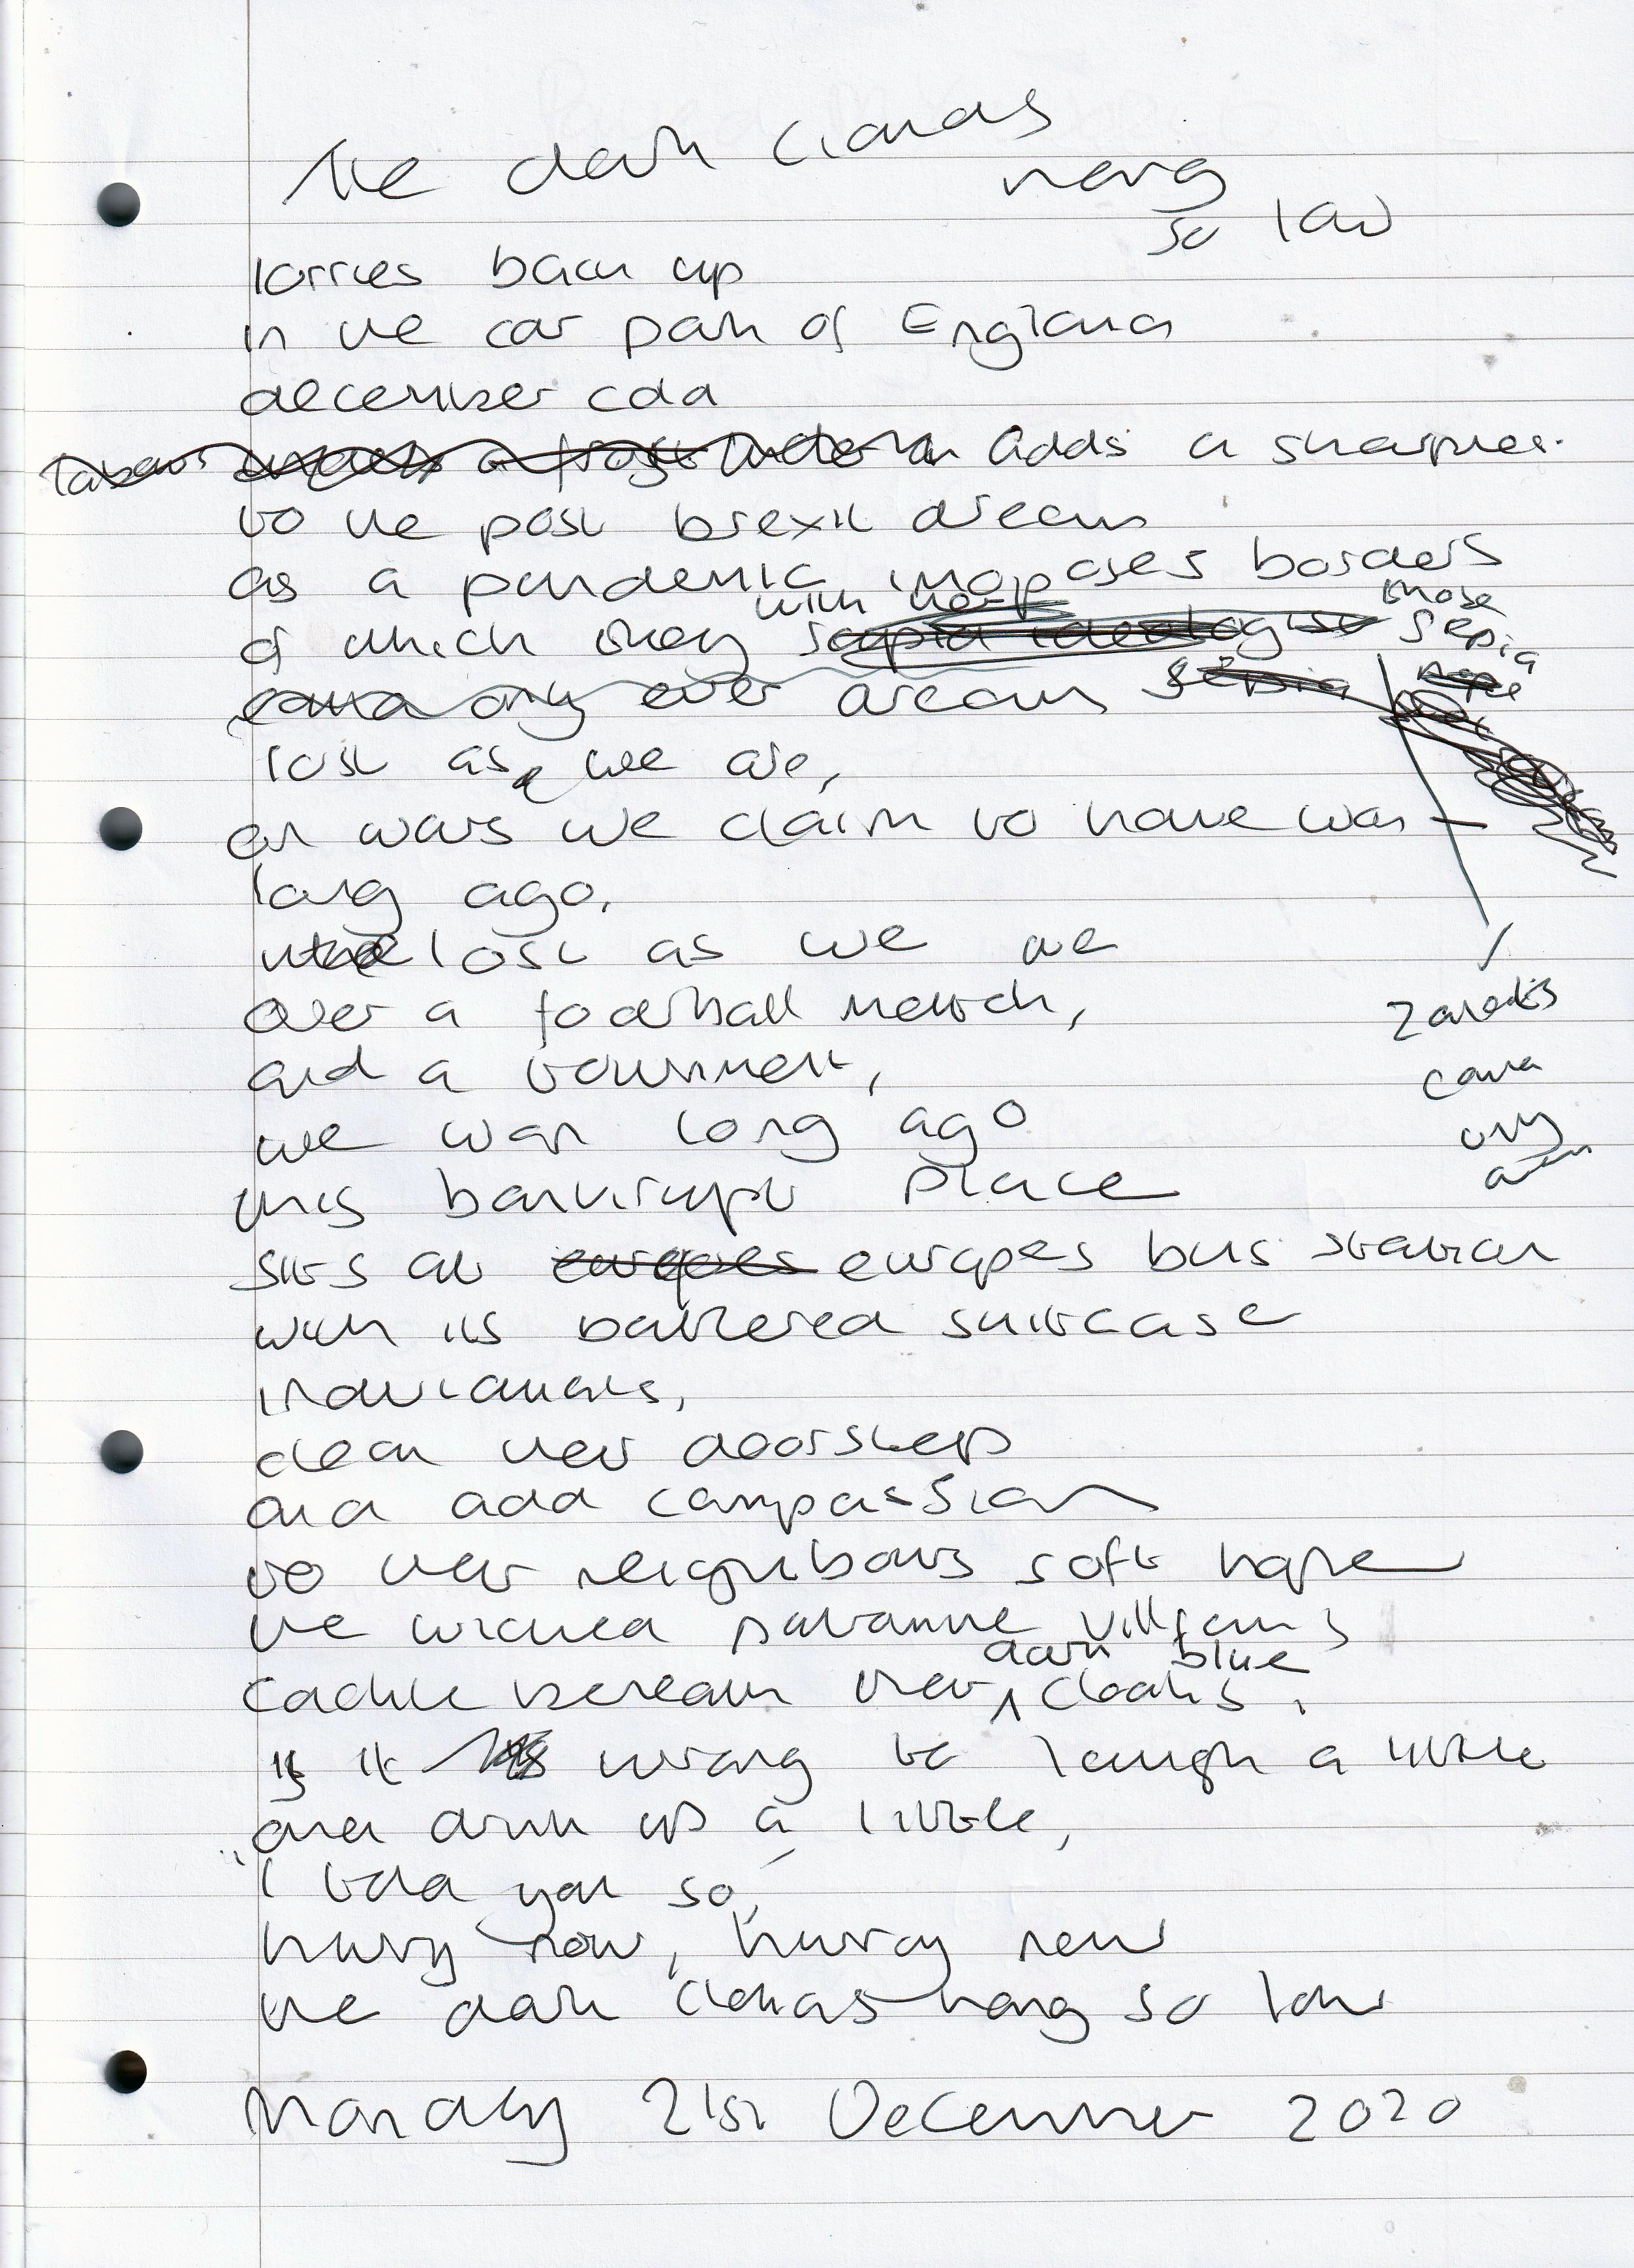 The dark clouds
hang
so low
lorries back up
in the car park of England
december cold
adds a sharpness
to the post brexit dream
as a pandemic imposes borders
with those
of which they sepia
ever dream
lost as we are,
on wars we claim to have won
long ago.
lost as we are
over a football match,
and a tournament,
we won long ago
zealots
could
only
dream
this bankrupt place
sits at europes bus station
with its battered suitcase
individuals,
clean their doorsteps
and add compassion
to their neighbours soft hope
the wicked pantomime villians
dark blue
cackle beneath their cloaks,
is it wrong to laugh a little
and drink up a little,
"I told you so,
hurry now, hurry now
the dark clouds hang so low
Monday 21st December 2020